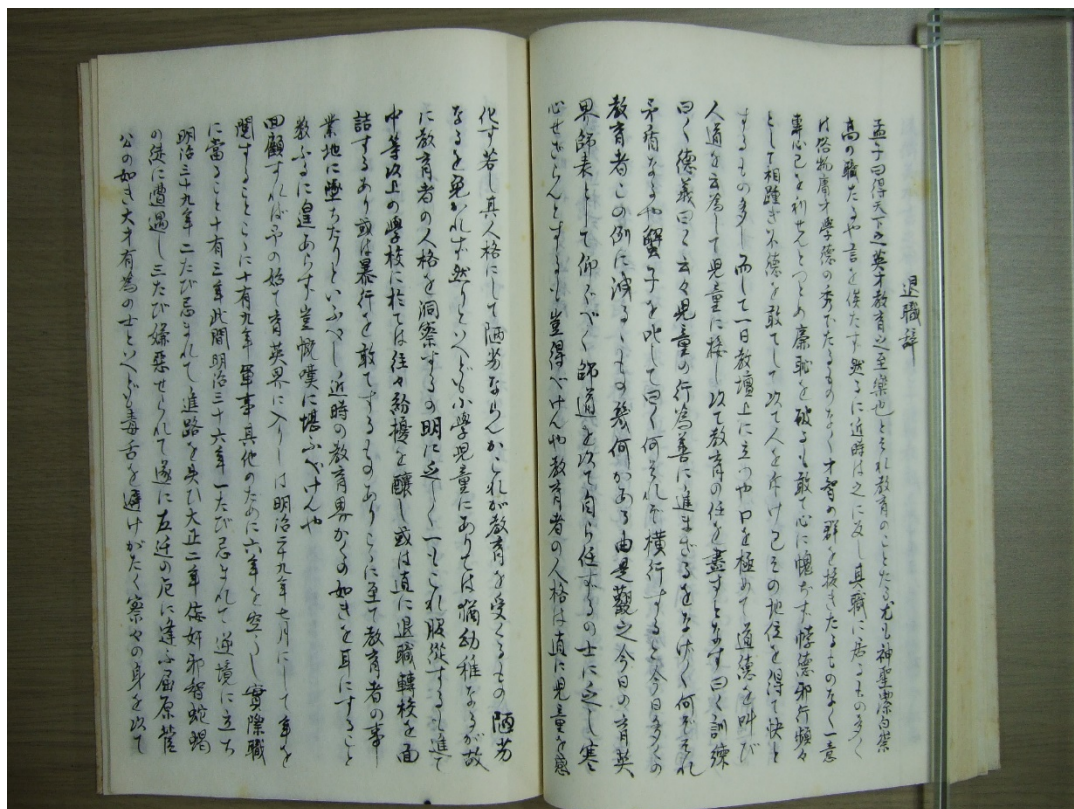 退職辞
孟子曰得天下之英才教育之至樂也とそれ教育のことたる尤も神聖潔白崇
高の職たるや言を俟たす然るに近時は之に反し其職に居るもの多く
は俗物庸才學徳の秀でたるものなく才智の群を抜きたるものなく一意
専心己を利せんとつとめ廉恥を破るも敢て心に愧ぢす悖徳邪行頻々
として相踵ぎ不徳を敢てして以て人を斥け己その地位を得て快と
するもの多し而して一日教壇上に立つや口を極めて道徳を叫び
人道を云為して児童に接し以て教育の任を盡すとなす曰く訓練
曰く徳義曰く云々児童の行為善に進まざるをなげく何ぞそれ
矛盾なるや蟹子を叱して曰く何ぞそれ横行すると今日多くの
教育者この例に洩るゝもの幾何かある由是觀之今日の育英
界師表として仰ぐべく師道を以て自ら任ずるの士に乏し寒
心せざらんとするも豈得べけんや教育者の人格は直に児童を感
化す若し真人格にして陋劣ならんかこれが教育を受くるもの陋劣
なるを免かれず然りといへども小學児童にありては猶幼稚なるが故
に教育者の人格を洞察するの明に乏しく一もこれ服從するも進て
中等以上の學校に於ては往々紛擾を醸し或は直に退職轉校を面
詰するあり或は暴行を敢てするものありこゝに至て教育者の事
業地に墜ちたりといふべし近時の教育界かくの如きを耳にすること
数ふるに遑あらず豈慨嘆に堪ふべけんや
回顧すれば予の始て育英界に入りしは明治二十九年七月にして事を
関することこゝに十有九年軍事其他のために六年を空うし實際職
に當ること十有三年此間明治三十六年一たび忌まれて逆境に立ち
明治三十九年二たび忌まれて進路を失ひ大正二年佞奸邪智蛇蝎
の徒に遭遇し三たび嫌悪せられて遂に左迁の厄に逢ふ屈原菅
公の如き大才有為の士といへども毒舌を避けがたく寥々の身を以て